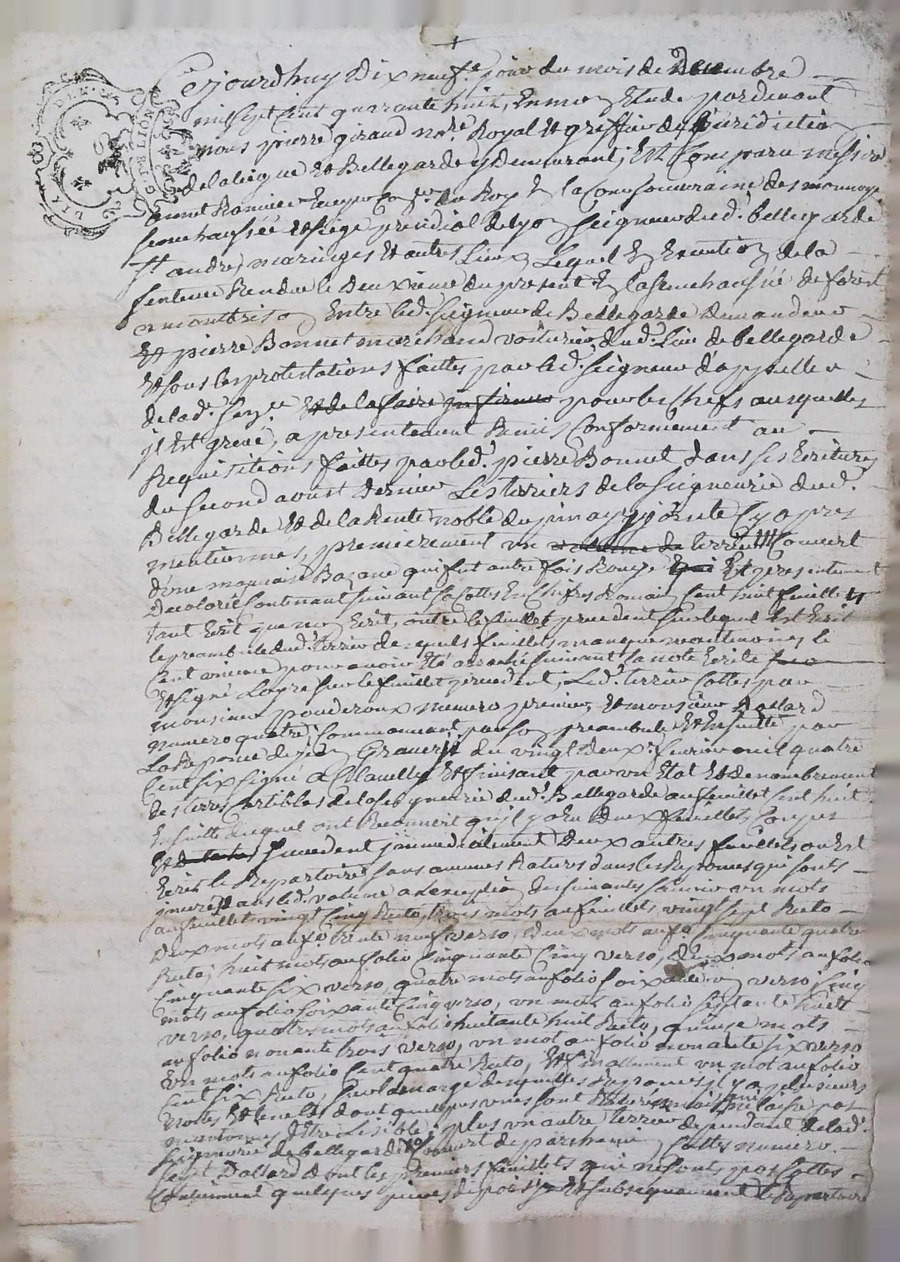 Cejourdhuy dix neufe. jour du mois de decembre
mil sept cent quarante huit, en mon Etude pardevant
nous pierre giraud nore. Royal et greffier de juridiction
de la et Bellegarde y demeurant, Est Comparu messire
annet Rannier du Roy en la Cour souveraine des monnoyes
senechaussée et siege presidial de lyon seigneur dud. bellegarde
St andre, maringes et autres lieux, Lequel en Execution de la
sentence Rendue le deuxieme du present en la senechaussée de forest
a montbrison Entre led. seigneur de Bellegarde demandeur
Et pierre Bonnet marchand voiturier dud. lieu de bellegarde
Et sous les protestations faittes par led. seigneur d'appeller
de lad. et de la faire infirmer pour les Chefs ausquelles
jl Est grevé, a presentement Remis Conformement au
Requisitions faittes par led. pierre Bonnet dans ses Ecritures
du second aoust dernier Les terriers de la seigneurie dud.
Bellegarde Et de la Rente noble du y jointe Cy apres
mentionnés, premierement un volume de terrier Couvert
d'une mauvaise Bazane qui fut autre fois Rouge Et presentement
decolorée Contenant suivant sa Cotte En chifres Romain, Cent huit feuillets
tant Ecrit que non Ecrit, outre le feuillet precedent sur lequel Est Ecrit
le preambule dud. terrier desquels feuillets manque neantmoins le
Cent onzieme pour avoir Eté arraché suivant la note Ecrite
Et signé Loyre sur le feuillet precedent, Led. terrier Cottés par
monsieur pouderoux numero premier, Et monsieur Dallard
numero quatre, Commencant par son preambule Et Ensuitte par
La Reponse de jean du vingt deux fevrier mil quatre
Cent six signé Et finissant par un Etat Et denombrement
des terres de la seigneurie dud. Bellegarde au feuillet Cent huit
Ensuitte duquel ont Reconnoit qu'il y a Eu deux feuillets Coupés
precedent jmmediatement deux autres feuillets ou Est
Ecrit le Repertoire, sans aucunes Ratures dans les Reponses qui sont
jnserée dans led. volume a l'exception des suivantes scavoir un mots
au feuillet vingt Cinq Recto, trois mots au feuillets vingt sept Recto
deux mots au fo. trente neuf verso, deux mots au fo. Cinquante quatre
Recto, huit mots au folio Cinquante Cinq verso, deux mots au folio
Cinquante six verso, quatre mots au folio soixante un verso, Cinq
mots au folio soixante Cinq verso, un mot au folio septante huit
verso, quatre mots au folio huitante huit Recto, quinze mots
au folio nonante trois verso, un mot au folio nonante six verso
un mots au folio Cent quatre Recto, Et finallement un mot au folio
Cent six Recto, sur la marge desquelles Reponses jl y a plusieurs
nottes Et renvoys dont quelques unes sont mais ne laisse pas
neantmoins d'etre lisible; plus un autre terrier dependant de lad.
seigneurie de bellegarde Couvert de parchemin Cottés numero
sept Dallard dont les premiers feuillets qui ne sont pas Cottés
Contiennent quelques pieces Et subsequamment le Repertoire